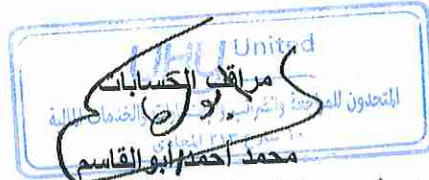 UHY United
مراقب الحسابات
المتحدون للمراجعة والضرائب والخدمات المالية
شارع
محمد أحمد أبو القاسم